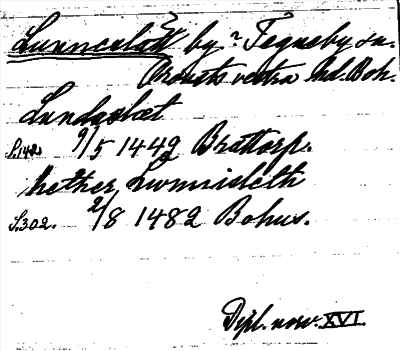 Lunneslätt by? Tegneby sn.
Orousts vestra hd. Boh.
Lundaslæt
S.142. 9/5 1442 Brattorp.
hether Lwnnisleth
S.302. 2/8 1482 Bohus.
Dipl. norv. XVI.